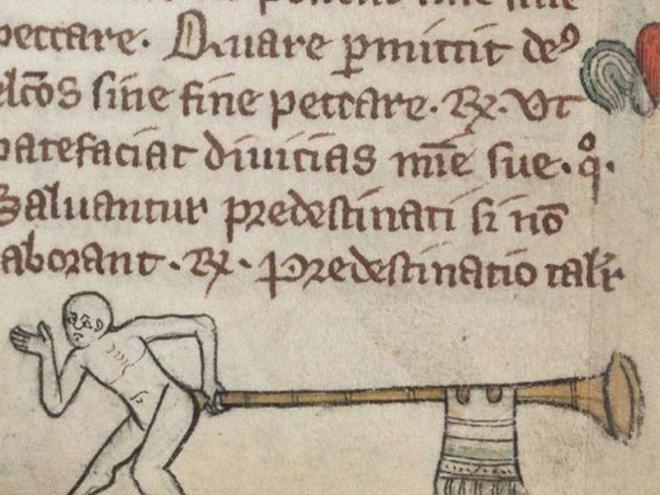 peccare. Quare ꝑmittit deꝰ
elcōs sine fine peccare. ℞. Vt
patefaciat diuicias mīe sue. qͦ.
Saluantur predestinati si nō
laborant. ℞. Predestinatio talr̄